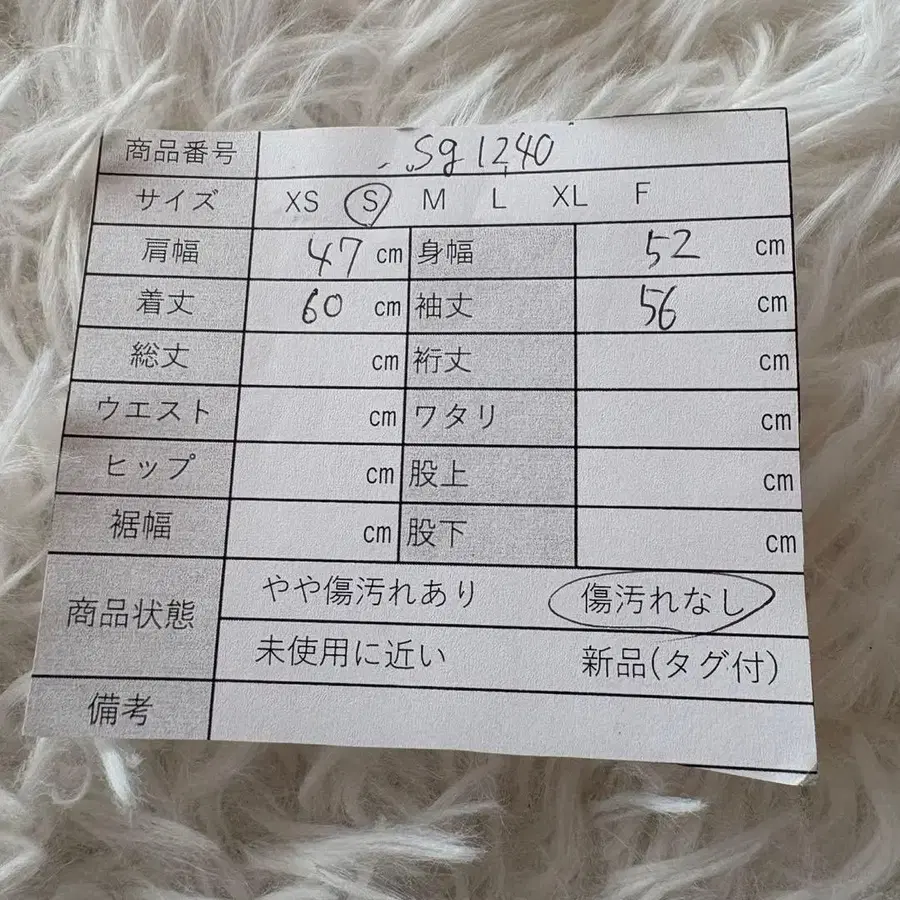 商品番号 Sg1240
サイズ XS S M L XL F
肩幅 47 cm 身幅 52 cm
着丈 60 cm 袖丈 56 cm
総丈 cm 裄丈 cm
ウエスト cm ワタリ cm
ヒップ cm 股上 cm
裾幅 cm 股下 cm
商品状態 やや傷汚れあり 傷汚れなし
未使用に近い 新品(タグ付)
備考